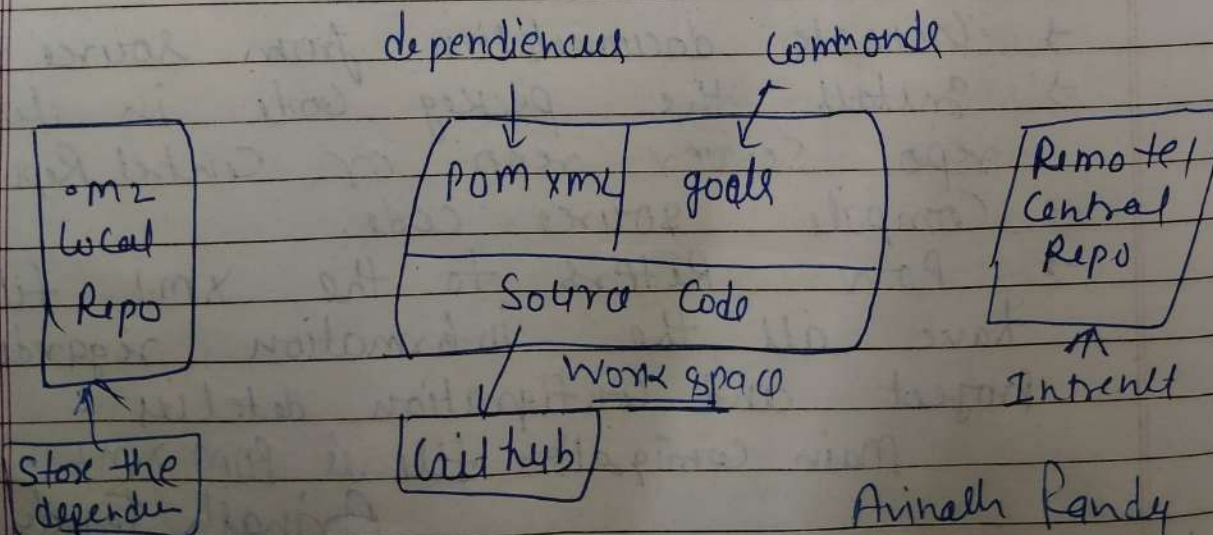 dependiencies commonds
.m2
Local
Repo
pom xml goals
Source Code
Work space
Remote/
Central
Repo
Intrenet
Store the
dependen
Git hub
Avinash Randy